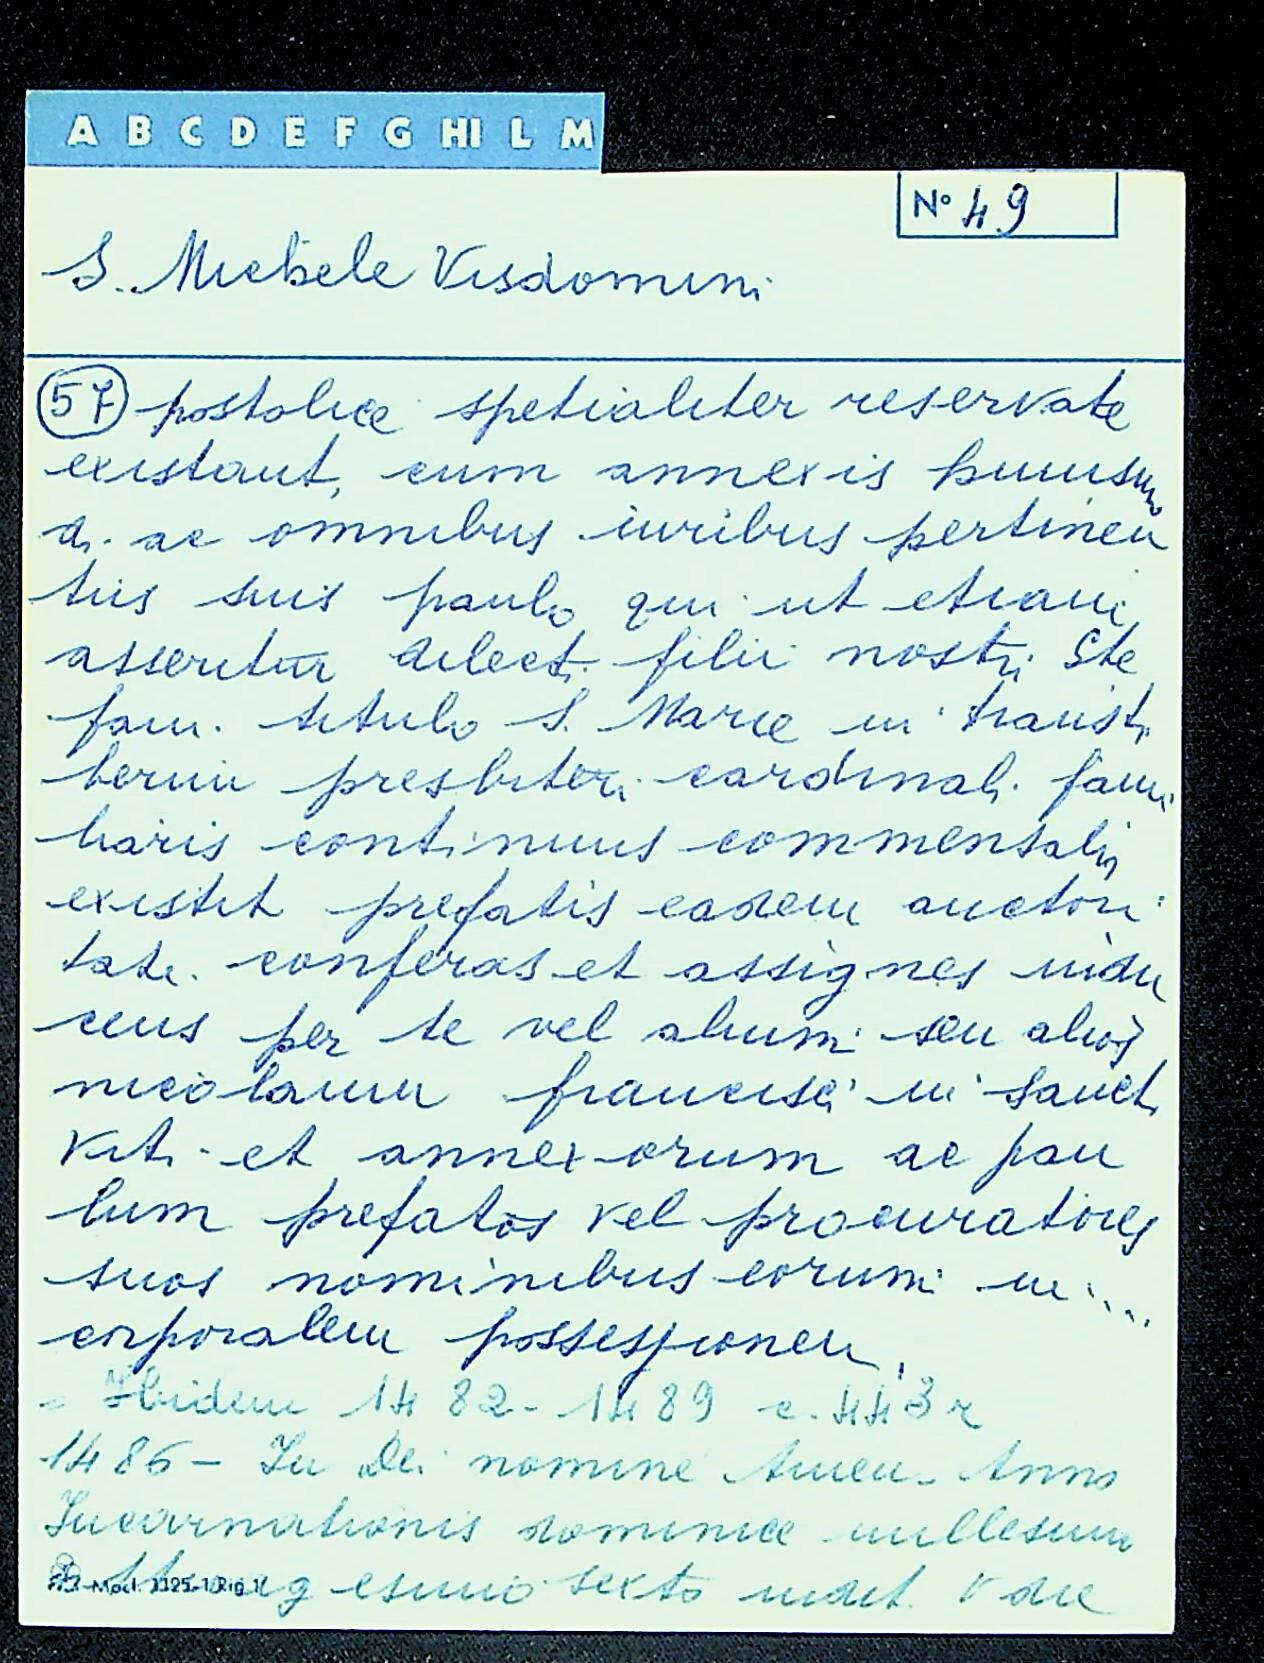 A B C D E F G HI L M
N° 49
S. Michele Visdomini
57 postolice spetialiter reservate
existant, cum annexis
di. ac omnibus iuribus pertinen
tiis suis paulo qui ut etiam
asseritur dilecti filii nostri Ste
fani. titulo S. Marie in transti
berim presbiteri cardinali. fami
liaris continuus commensalis
existit prefatis eadem auctori
tate. conferas et assignes indu
cens per te vel alium seu alios
nicolaum francisci in Sancti
Viti et annexorum ac pau
lum prefatos vel procuratores
suos nominibus eorum in ....
corporalem possessionem.
= Ibidem 1482-1489 c. 443 r
1486 - In Dei nomine Amen. Anno
Incarnationis dominice millesimo
esimo sexto indit. V die